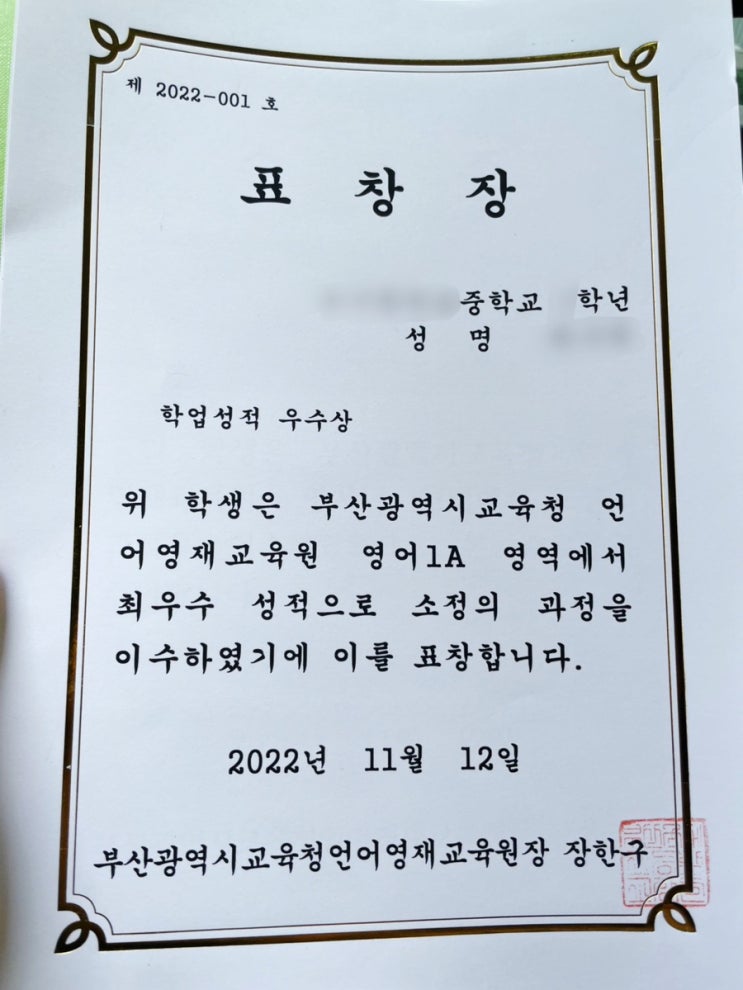 제 2022-001 호
표 창 장
중학교 학년
성 명
학업성적 우수상
위 학생은 부산광역시교육청 언
어영재교육원 영어1A 영역에서
최우수 성적으로 소정의 과정을
이수하였기에 이를 표창합니다.
2022년 11월 12일
부산광역시교육청언어영재교육원장 장한구